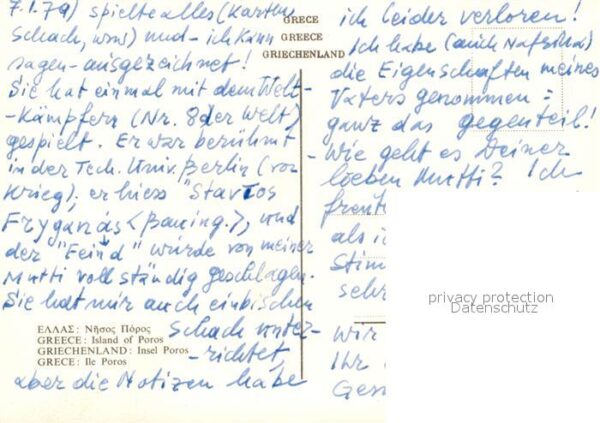 7.1.79) spielte alles (Karten,
Schach, usw) und - ich kann
sagen - ausgezeichnet!
Sie hat einmal mit dem Welt-
-Kämpfern (Nr. 8 der Welt)
gespielt. Er war berühmt
in der Tech. Univ. Berlin (vor
Krieg). er hiess "Stavros
Fryganás <Bauing.>, und
der "Feind" wurde von meiner
Mutti vollständig geschlagen.
Sie hat mir auch ein bischen
Schach unter-
-richtet,
aber die Notizen habe
GRECE
GREECE
GRIECHENLAND
ΕΛΛΑΣ: Νῆσος Πόρος
GREECE: Island of Poros
GRIECHENLAND: Insel Poros
GRECE: Ile Poros
ich leider verloren!
Ich habe (auch
die Eigenschaften meines
Vaters genommen =
ganz das gegenteil!
- Wie geht es Deiner
lieben Mutti? Ich
freut
als i
Stim
sehr
wir
Ihr
Ges
privacy protection
Datenschutz